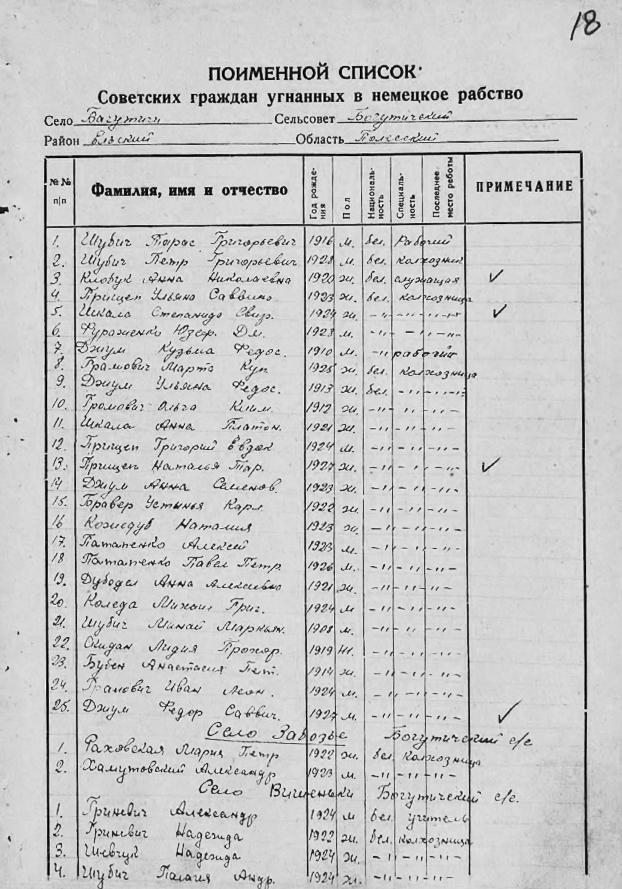 18
ПОИМЕННОЙ СПИСОК
Советских граждан угнанных в немецкое рабство
Село Багутичи Сельсовет Богутический
Район Ельский Область Полесский
№№ п/п Фамилия, имя и отчество Год рождения Пол Национальность Специальность Последнее место работы ПРИМЕЧАНИЕ
1. Шубич Тарас Григорьевич 1916 м. бел. Рабочий
2. Шубич Петр Григорьевич 1928 м. бел. колхозник
3. Анна Николаевна 1920 ж. бел. служащая ✓
4. Прищеп Ульяна Саввишна 1923 ж. бел. колхозница
5. Шкала Степанида 1924 ж. -"- -"- -"- ✓
6. Фураженко Юзеф. Дм. 1923 м. -"- -"- -"-
7. Джум Кузьма Федос. 1910 м. -"- рабочий
8. Громович Марта Куп 1925 ж. бел. колхозница
9. Джум Ульяна Федос. 1913 ж. бел. -"- -"-
10. Громович Ольга Клим. 1912 ж. -"- -"- -"-
11. Шкала Анна Платон. 1921 ж. -"- -"- -"-
12. Прищеп Григорий Евдок 1924 м. -"- -"- -"-
13. Прищеп Наталья Тар. 1927 ж. -"- -"- -"- ✓
14. Джум Анна Семенов. 1923 ж. -"- -"- -"-
15. Бравер Устинья Карл. 1922 ж. -"- -"- -"-
16 Кожедуб Наталия 1923 ж. -"- -"- -"-
17. Потапенко Алексей 1923 м. -"- -"- -"-
18 Потапенко Павел Петр 1926 м. -"- -"- -"-
19. Дубодел Анна Алексеевна 1921 ж. -"- -"- -"-
20. Коледа Михаил Григ. 1924 м -"- -"- -"-
21. Шубич Минай Маркьян. 1908 м. -"- -"- -"-
22. Скидан Лидия Прохор. 1919 ж. -"- -"- -"-
23. Бубен Анастасия Пет. 1914 ж. -"- -"- -"-
24. Иван Леон. 1924 м. -"- -"- -"-
25. Джум Федор Саввич. 1927 м. -"- -"- -"- ✓
Село Заводье Богутический с/с
1. Раховская Мария Петр 1922 ж. бел. колхозница
2. Хамутовский Александр 1923 м. -"- -"- -"-
Село Вишеньки Богутический с/с.
1. Гриневич Александр 1924 м бел. учитель
2. Гриневич Надежда 1922 ж. бел. колхозница
3. Шевчук Надежда 1924 ж. -"- -"- -"-
4. Шубич Палагия Андр. 1924 ж. -"- -"- -"-